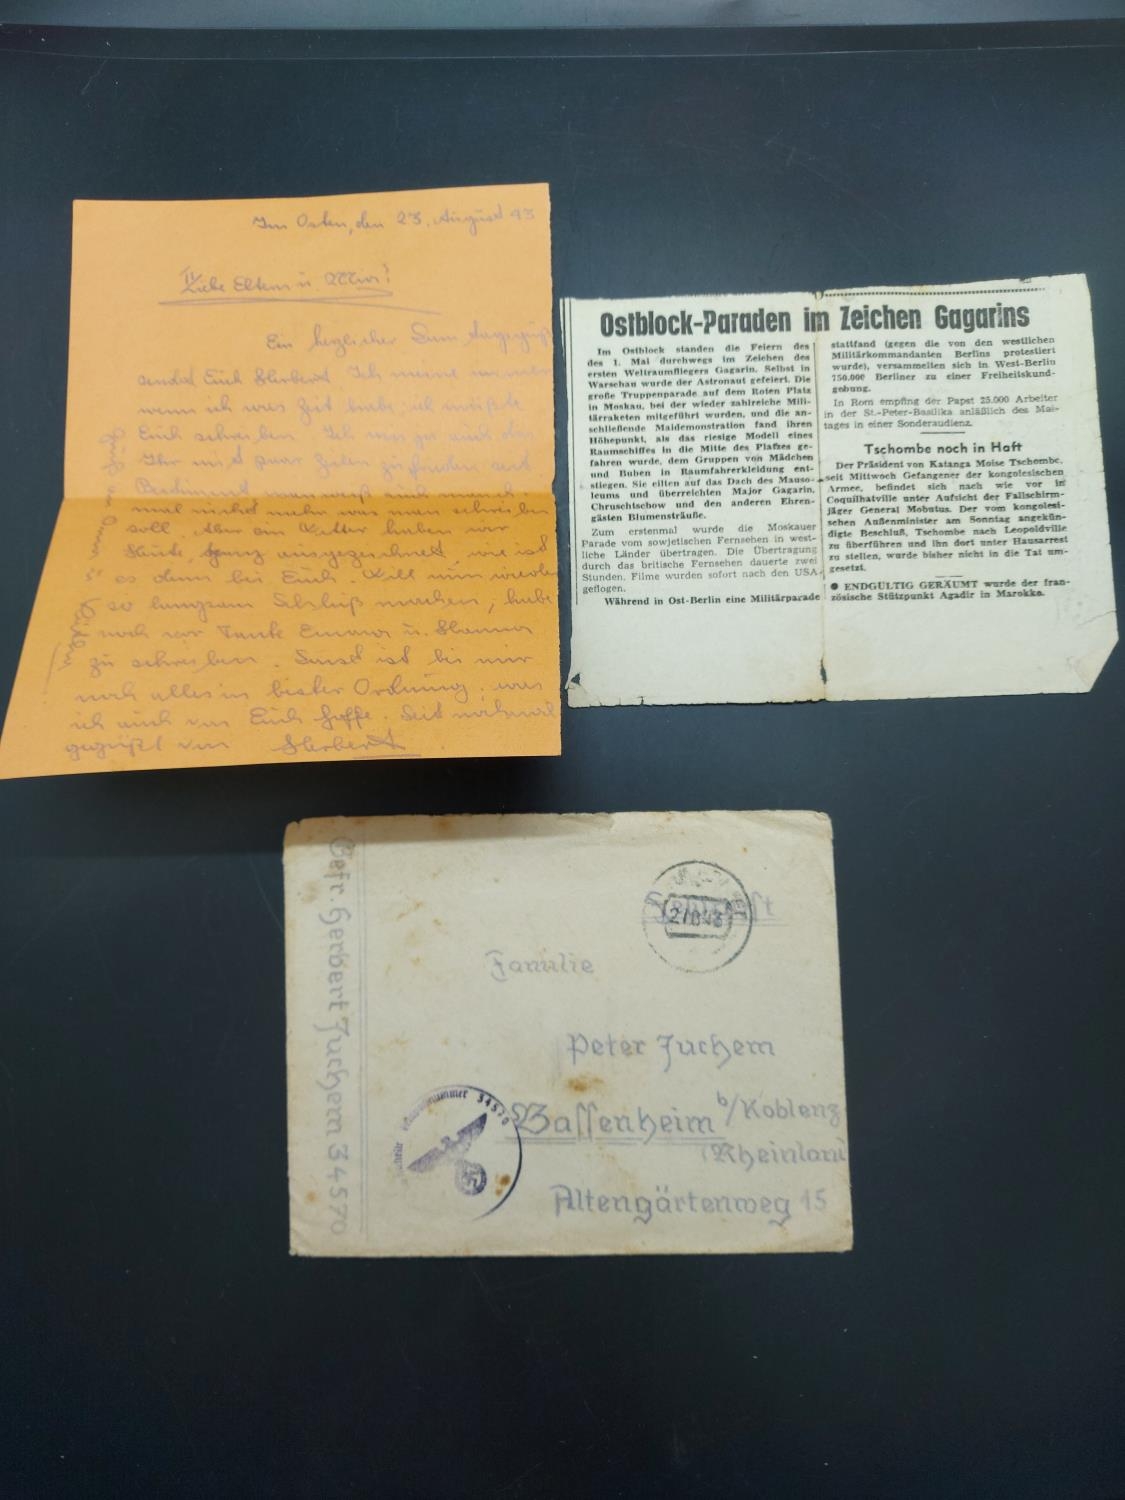 Im Osten, den 23. August 43
Liebe Eltern u.
Ein herzlicher
sendet Euch Herbert. Ich meine immer
wenn ich was Zeit habe ich müßte
Euch schreiben. Ich
Ihr mit paar Zeilen zufrieden seit
man weiß auch manch-
mal nicht mehr was man schreiben
soll. Aber ein Wetter haben wir
Heute, ganz ausgezeichnet, wie ist
es denn bei Euch. Will nun wieder
so langsam Schluß machen, habe
noch vor Tante Emma u. Hanna
zu schreiben. Sonst ist bei mir
noch alles in bester Ordnung, was
ich auch von Euch hoffe. Seit nochmal
gegrüßt von Herbert
Ostblock-Paraden im Zeichen Gagarins
Im Ostblock standen die Feiern des
des 1. Mai durchwegs im Zeichen des
ersten Weltraumfliegers Gagarin. Selbst in
Warschau wurde der Astronaut gefeiert. Die
große Truppenparade auf dem Roten Platz
in Moskau, bei der wieder zahlreiche Mili-
tärraketen mitgeführt wurden, und die an-
schließende Maidemonstration fand ihren
Höhepunkt, als das riesige Modell eines
Raumschiffes in die Mitte des Platzes ge-
fahren wurde, dem Gruppen von Mädchen
und Buben in Raumfahrerkleidung ent-
stiegen. Sie eilten auf das Dach des Mauso-
leums und überreichten Major Gagarin,
Chruschtschow und den anderen Ehren-
gästen Blumensträuße.
Zum erstenmal wurde die Moskauer
Parade vom sowjetischen Fernsehen in west-
liche Länder übertragen. Die Übertragung
durch das britische Fernsehen dauerte zwei
Stunden. Filme wurden sofort nach den USA
geflogen.
Während in Ost-Berlin eine Militärparade
stattfand (gegen die von den westlichen
Militärkommandanten Berlins protestiert
wurde), versammelten sich in West-Berlin
750.000 Berliner zu einer Freiheitskund-
gebung.
In Rom empfing der Papst 25.000 Arbeiter
in der St.-Peter-Basilika anläßlich des Mai-
tages in einer Sonderaudienz.
Tschombe noch in Haft
Der Präsident von Katanga Moise Tschombe,
seit Mittwoch Gefangener der kongolesischen
Armee, befindet sich nach wie vor in
Coquilhatville unter Aufsicht der Fallschirm-
jäger General Mobutus. Der vom kongolesi-
schen Außenminister am Sonntag angekün-
digte Beschluß, Tschombe nach Leopoldville
zu überführen und ihn dort unter Hausarrest
zu stellen, wurde bisher nicht in die Tat um-
gesetzt.
● ENDGÜLTIG GERÄUMT wurde der fran-
zösische Stützpunkt Agadir in Marokko.
Gefr. Herbert Juchem 34570
Feldpost
Familie
Peter Juchem
Bassenheim b/Koblenz
(Rheinland
Altengärtenweg 15
34570